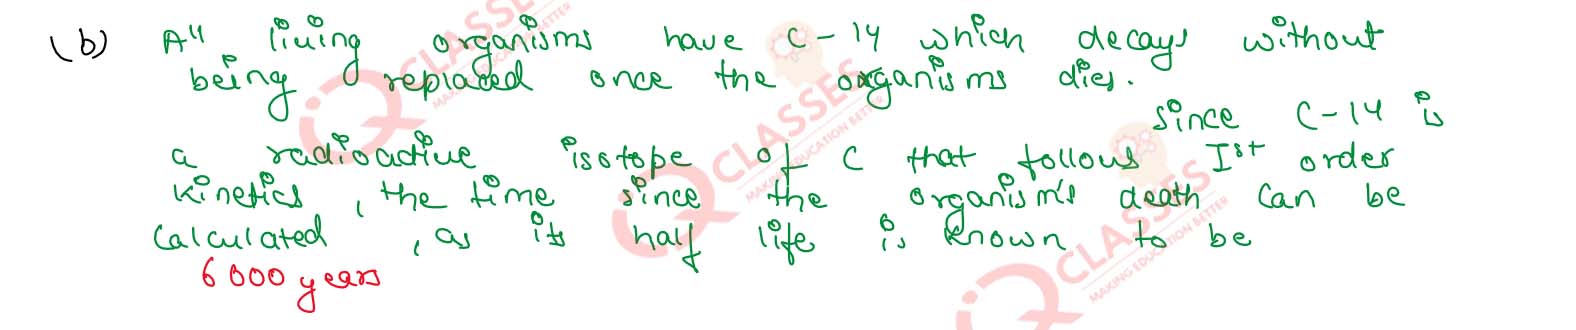 (b) All living organisms have C-14 which decays without
being replaced once the organisms dies.
since C-14 is
a radioactive isotope of C that follows Ist order
kinetics, the time since the organism's death can be
calculated, as its half life is known to be
6000 years
IQ CLASSES
MAKING EDUCATION BETTER
IQ CLASSES
MAKING EDUCATION BETTER
IQ CLASSES
MAKING EDUCATION BETTER